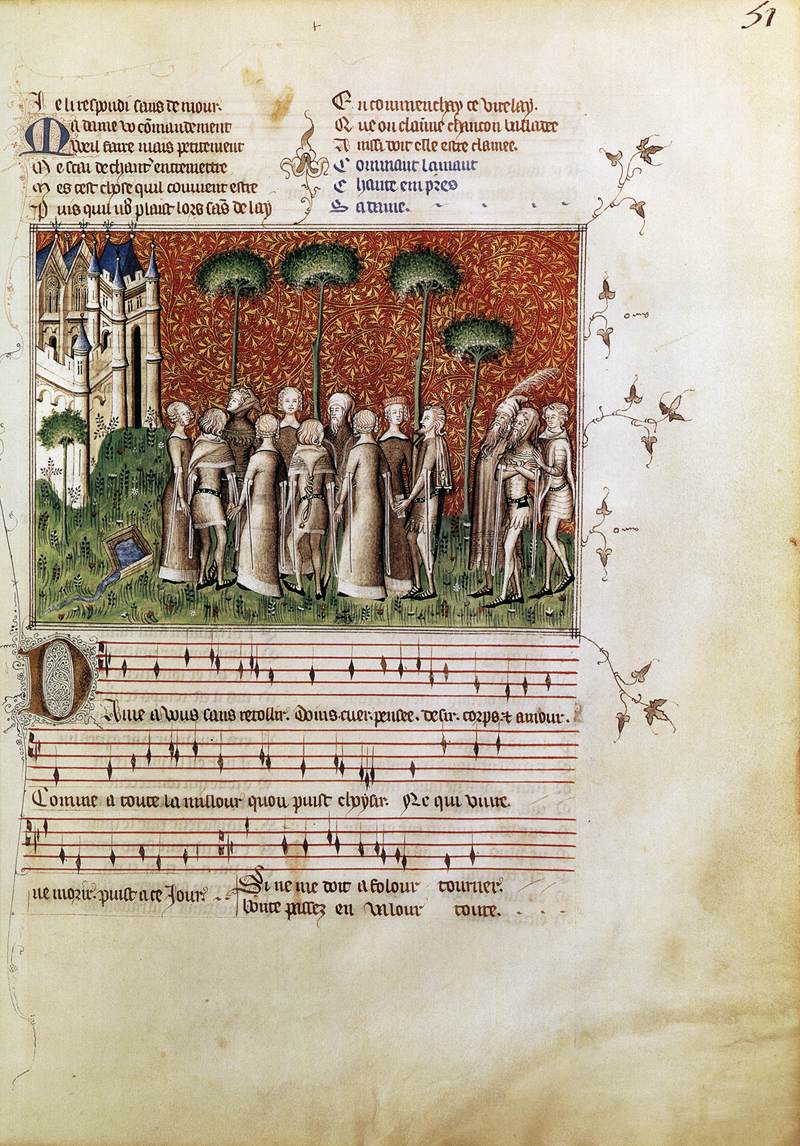 51
Je li respondi sans demour.
Ma dame vo cōmandement
Vueil faire mais petitement
Me scai de chant' entremettre
Mes cest chose quil couuient estre
Puis quil vo9 plaist lors sās delay
En commenchay ce virelay.
Que on claīme chancon balladee
Ainsi doit elle estre clamee.
Commant lamant
Chante empres
Sa dame.
Dame a vous sans retollir. Doins cuer. pensee. desir. corps ⁊ amour.
Comme a toute la millour quon puist choysir. Ne qui viure.
ne morir. puist a ce Jour.
Si ne me doit a folour tourner.
en valour toute.